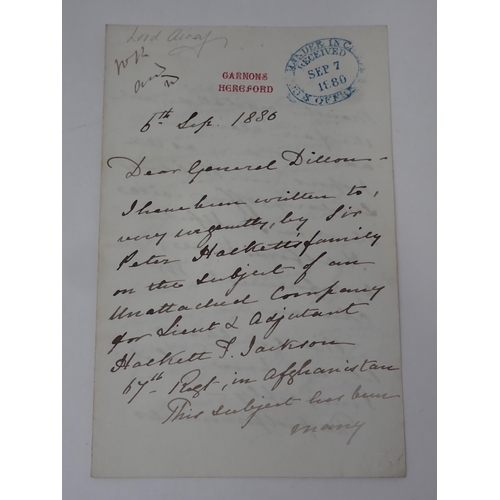 Lord Airey
GARNONS
HEREFORD
RECEIVED
SEP 7
1880
6th Sep. 1880
Dear General Dillon -
I have been written to,
very urgently, by Sir
Peter Halkett's family
on the subject of an
Unattached Company
for Lieut & Adjutant
Halkett F. Jackson
67th Regt, in Afghanistan
This subject has been
many